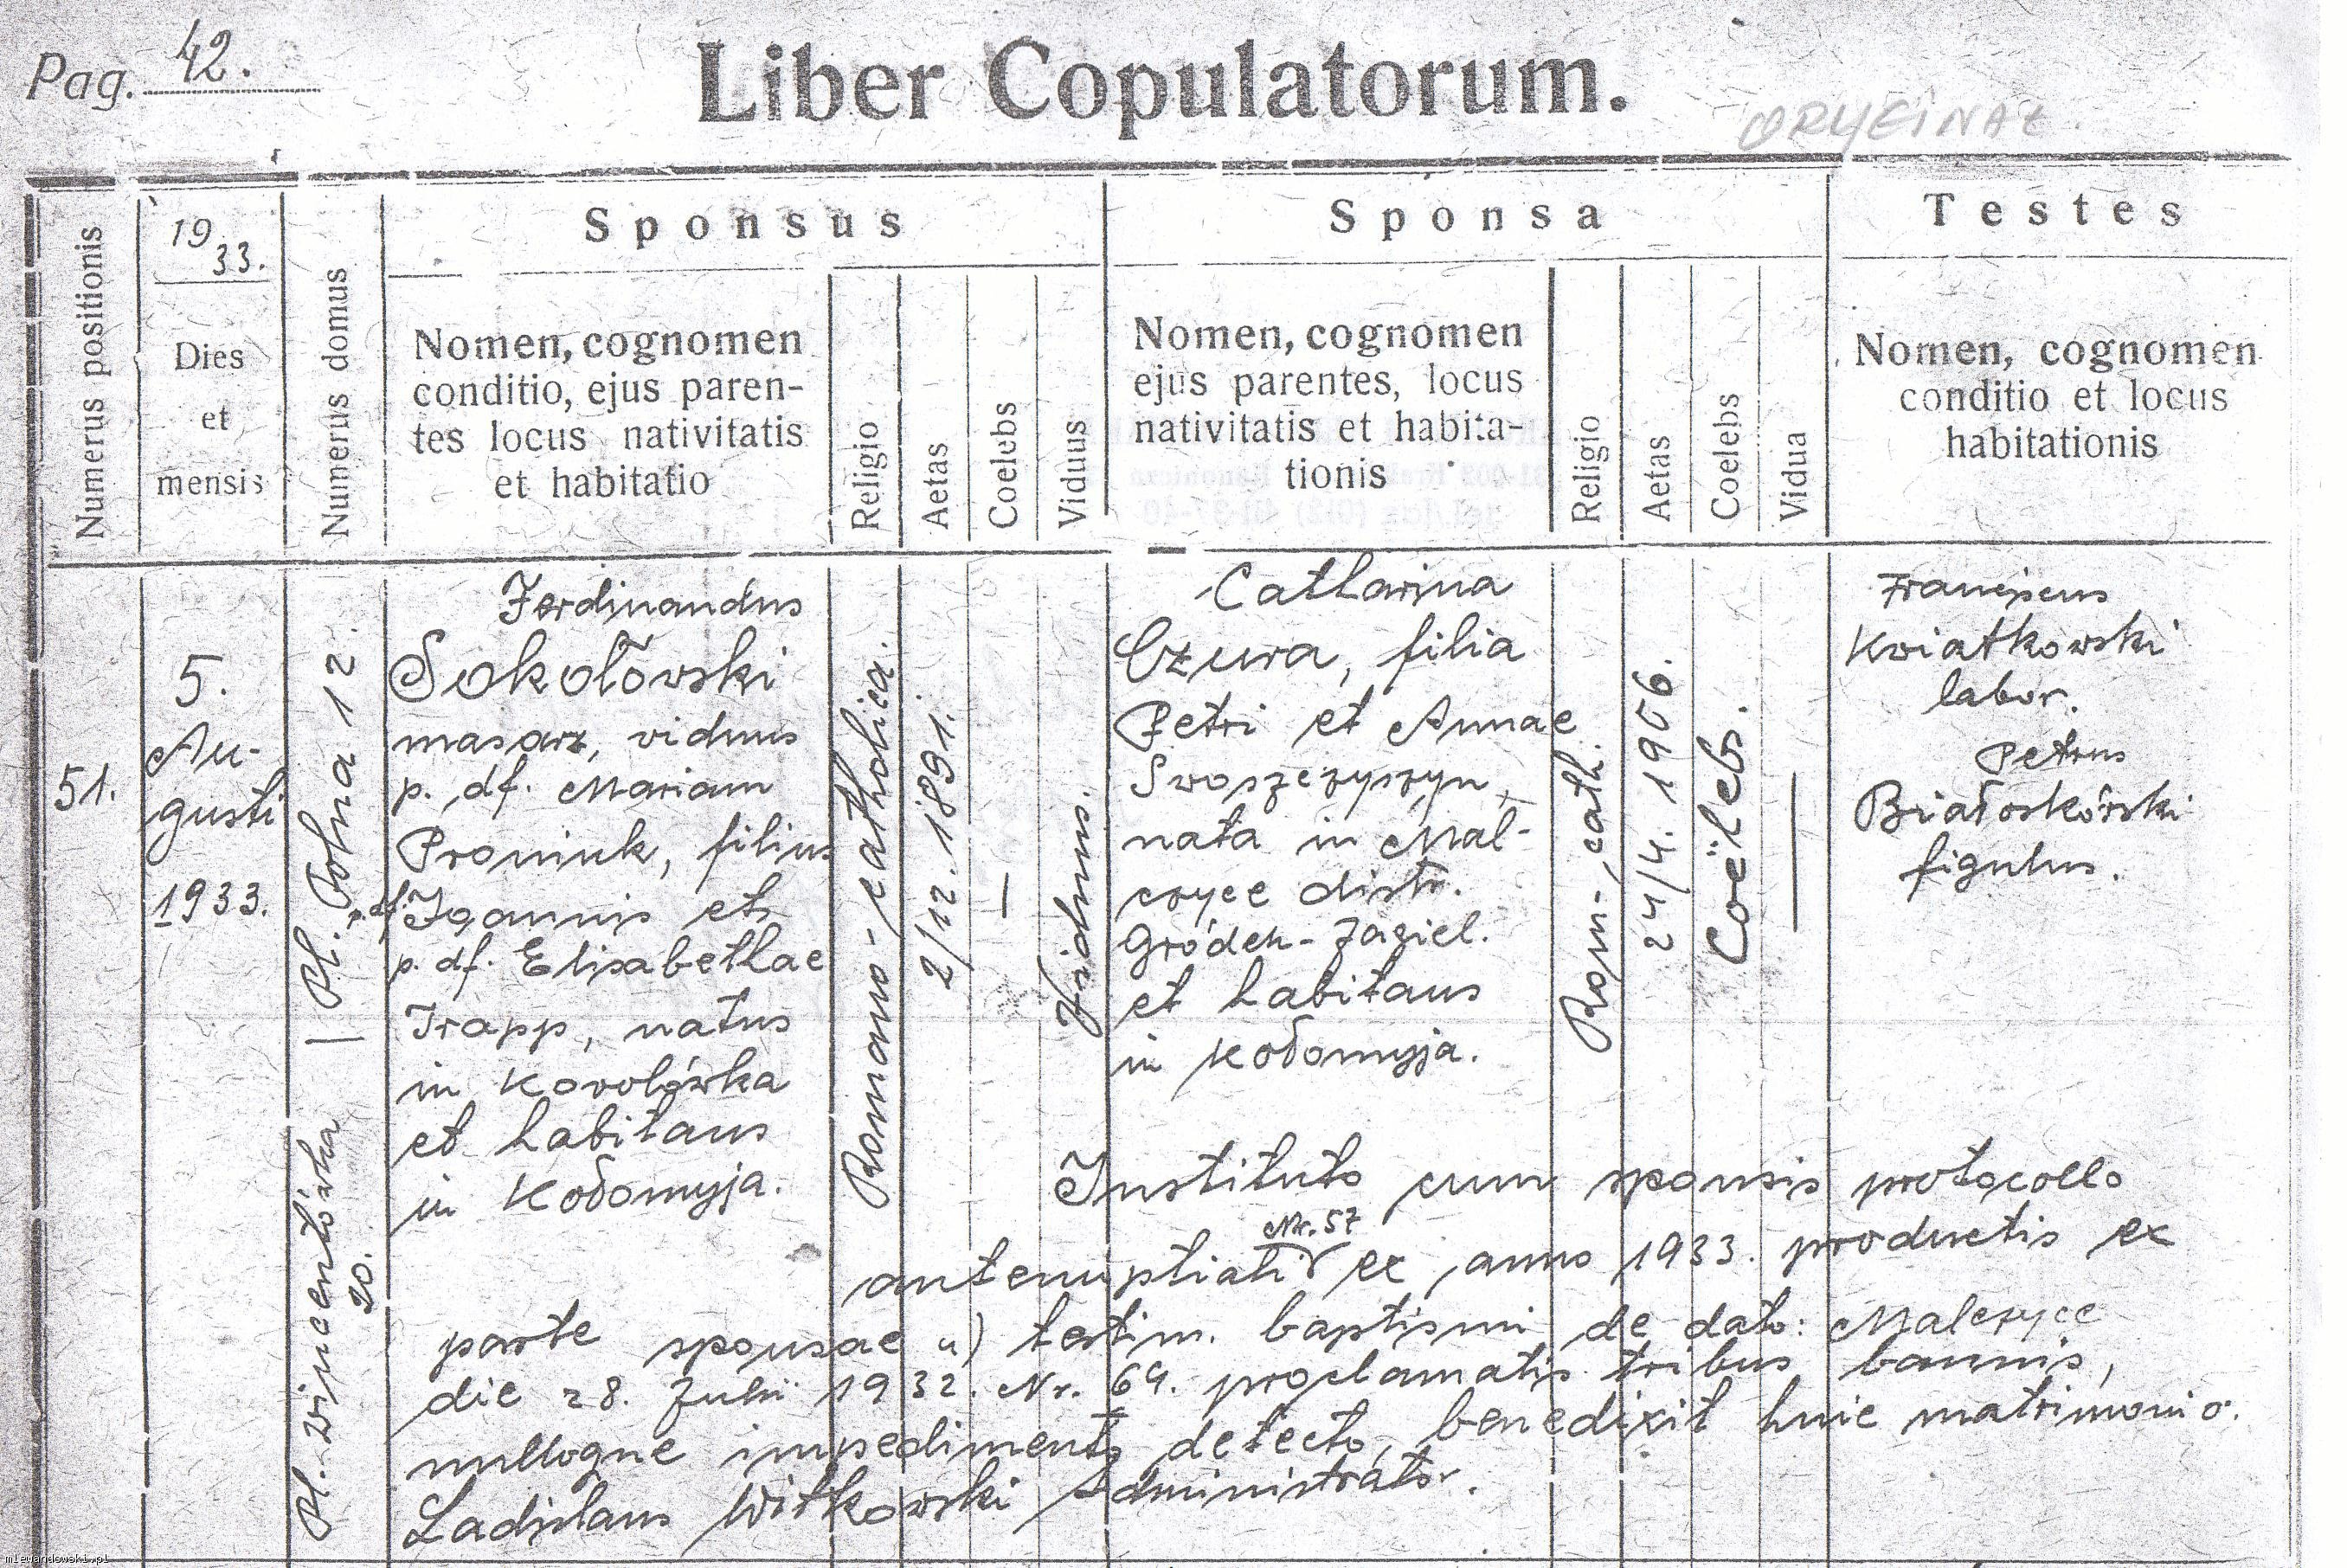 Pag. 42.
Liber Copulatorum.
ORYGINAŁ
Numerus positionis
1933.
Dies
et
mensis
Numerus domus
Sponsus
Nomen, cognomen
conditio, ejus paren-
tes locus nativitatis
et habitatio
Religio
Aetas
Coelebs
Viduus
Sponsa
Nomen, cognomen
ejus parentes, locus
nativitatis et habita-
tionis
Religio
Aetas
Coelebs
Vidua
Testes
Nomen, cognomen
conditio et locus
habitationis
51.
5.
Au-
gusti
1933.
Pl. Polna 12.
Pl. Wincentówka
20.
Ferdinandus
Sokołowski
masarz, viduus
p. df. Mariam
Proniuk, filius
p. df. Joannis et
p. df. Elisabethae
Trapp, natus
in Korolówka
et habitans
in Kołomyja.
Romano-catholica.
2/12. 1891.
—
Viduus.
Catharina
Czura, filia
Petri et Annae
Swoszczyszyn,
nata in Mal-
czyce distr.
Gródek-Jagiel.
et habitans
in Kołomyja.
Rom.-cath.
24/4. 1906.
Coëlebs.
—
Franciscus
Kwiatkowski
labor.
Petrus
Białoskórski
figulus.
Instituto cum sponsis protocollo
Nr. 57
antenuptiali ex anno 1933. productis ex
parte sponsae a) testim. baptismi de dato: Malczyce
die 28. Julii 1932. Nr. 69. proclamatis tribus bannis,
nulloque impedimento detecto, benedixit huic matrimonio.
Ladislaus Witkowski Administrator.
mlewandowski.pl